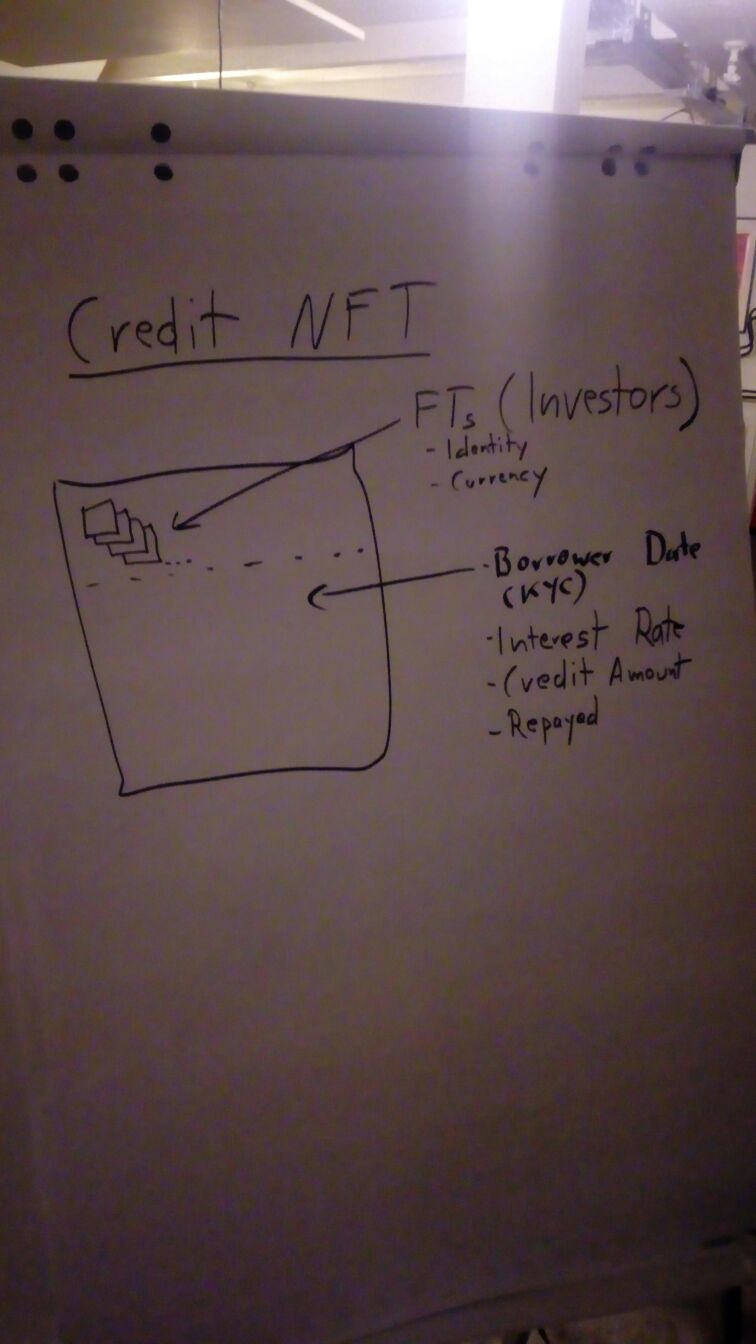 Credit NFT
FTs (Investors)
- Identity
- Currency
- Borrower Date
(KYC)
- Interest Rate
- Credit Amount
- Repayed